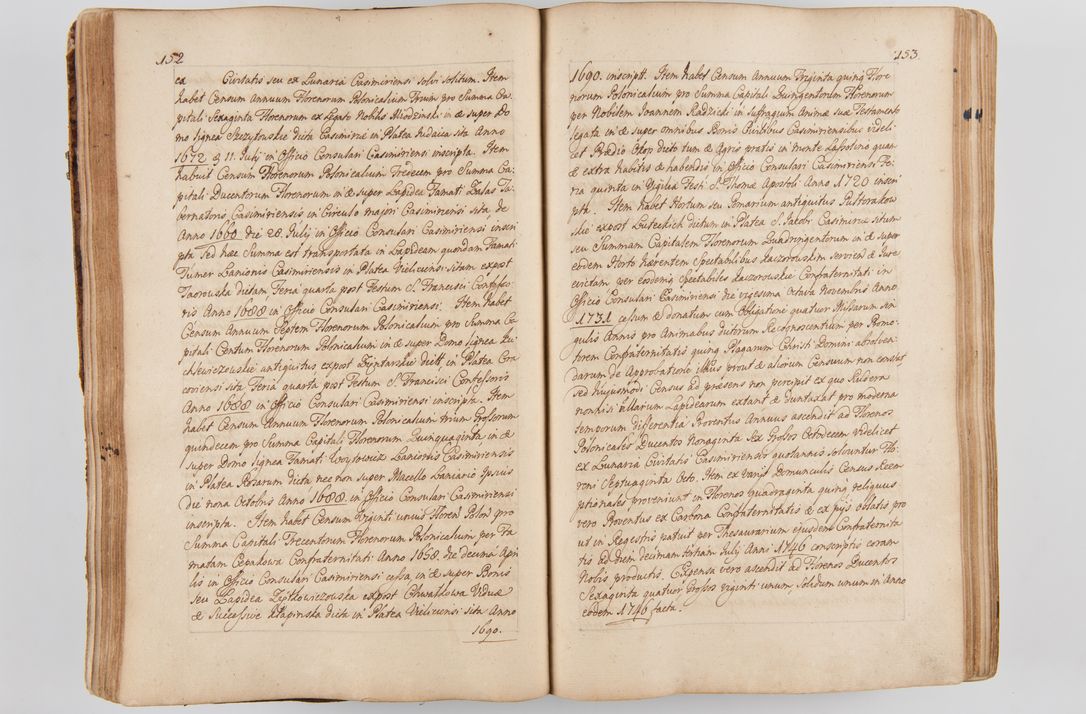 152
ca Civitatis seu ex Lunaria Casimiriensi solvi solitum. Item
habet Censum Annuum Florenorum Polonicalium Trium pro Summa Ca-
pitali Sexaginta Florenorum ex Legato Nobilis Miodzinski in & super Do-
mo lignea Szczytowskie dicta Casimiriæ in Platea Judaica sita Anno
1672 d 11. Julij in Officio Consulari Casimiriensi inscripta. Item
habuit Censum Florenorum Polonicalium Tredecem pro Summa Ca-
pitali Ducentorum Florenorum in & super Lapidea Famati Zalas Ta-
bernatoris Casimiriensis in Circulo majori Casimiriensi sita de
Anno 1660 die 28. Julij in Officio Consulari Casimiriensi inscri-
pta Sed hæc Summa est transportata in Lapideam quondam Famati
Turner Lanionis Casimiriensis in Platea Vielicensi sitam expost
Taorouska dictam Feria quarta post Festum S. Francisci Confesso-
ris Anno 1688 in Officio Consulari Casimiriensi. Item habet
Censum Annuum Septem Florenorum Polonicalium pro Summa Ca-
pitali Centum Florenorum Polonicalium in & super Domo lignea
antiquitus expost dict. in Platea Cra-
coviensi sita Feria quarta post Festum S. Francisci Confessoris
Anno 1688 in Officio Consulari Casimiriensi inscripta. Item
habet Censum Annuum Florenorum Polonicalium trium Grossorum
quindecem pro Summa Capitali Florenorum Quinquaginta in &
super Domo lignea Famati Woytowicz Lanionis Casimiriensis
in Platea Rosarum dicta nec non super Macello Laniario Ipsius
die nona Octobris Anno 1688 in Officio Consulari Casimiriensi
inscripta. Item habet Censum Viginti unius Floren Polon pro
Summa Capitali Trecentorum Florenorum Polonicalium per Fa-
matam Cepakowa Confraternitati Anno 1658 die decima Apri-
lis in Officio Consulari Casimiriensi cessa, in & super Bonis
seu Lapidea Zytkowiczouska expost Chwatkowa Viduæ
& Successive Klapinska dicta in Platea Vielicensi sita Anno
1690.
153
1690. inscript. Item habet Censum Annuum Triginta quinq Flore-
norum Polonicalium pro Summa Capitali Quingentorum Florenorum
per Nobilem Joannem Radzicki in Suffragium Animæ suæ Testamento
legata in & super omnibus Bonis Civibus Casimiriensibus videli-
cet Prædio dicto tum & Agris pratis in monte Lassotino qua
& extra habitis & habendis in Officio Consulari Casimiriensi Fe-
ria quinta in Vigilia Festi S. Thomæ Apostoli Anno 1720 inscri-
pta. Item habet Hortum seu Pomarium antiquitus
expost dictum in Platea S. Jacobi Casimiriæ situm
seu Summam Capitalem Florenorum Quadringentorum in & super
eodem Horto hærentem Spectabilibus Kaczorowskim servien & Jure
evictam per eosdemq Spectabiles Kaczorowskie Confraternitati in
Officio Consulari Casimiriensi die vigesima Octava Novembris Anno
1731 cessum & donatum cum Obligatione quatuor Missarum sin-
gulis Annis pro Animabus dictorum Recognoscentium per Promo-
torem Confraternitatis quinq Plagarum Christi Domini absolven-
darum de Approbatione illius prout & aliorum Censuum non constat,
sed hujusmodi Census ad præsens non percipit ex quo Rudera
nonnisi illarum Lapidearum extant & duntaxat pro moderna
temporum differentia Proventus Annuus ascendit ad Florenos
Polonicales Ducentos Nonaginta Sex Grossos Octodecem videlicet
ex Lunaria Civitatis Casimiriensis quotannis solvuntur Flo-
reni Septuaginta Octo. Item ex varijs Domunculis Census Reem-
ptionales proveniunt in Florenos quadraginta quinq reliquus
vero Proventus ex Carbona Confraternitatis & ex pijs oblatis pro
ut in Regestris patuit per Thesaurarium ejusdem Confraternita-
tis ad diem decimam tertiam Julij Anni 1746 conscriptis coram
Nobis productis. Expensa vero ascendit ad Florenos Ducentos
Sexaginta quatuor Grossos viginti unum, Solidum unum in Anno
eodem 1746 facta.